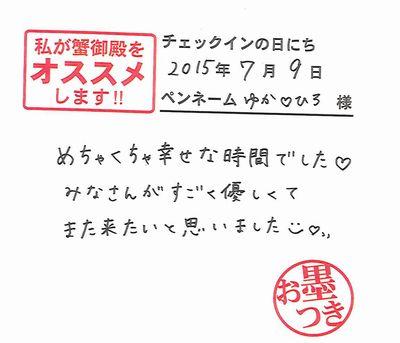 私が蟹御殿を
オススメ
します!!
チェックインの日にち
2015年7月9日
ペンネーム ゆか♡ひろ 様
めちゃくちゃ幸せな時間でした♡
みなさんがすごく優しくて
また来たいと思いました☺♡,,
お墨つき